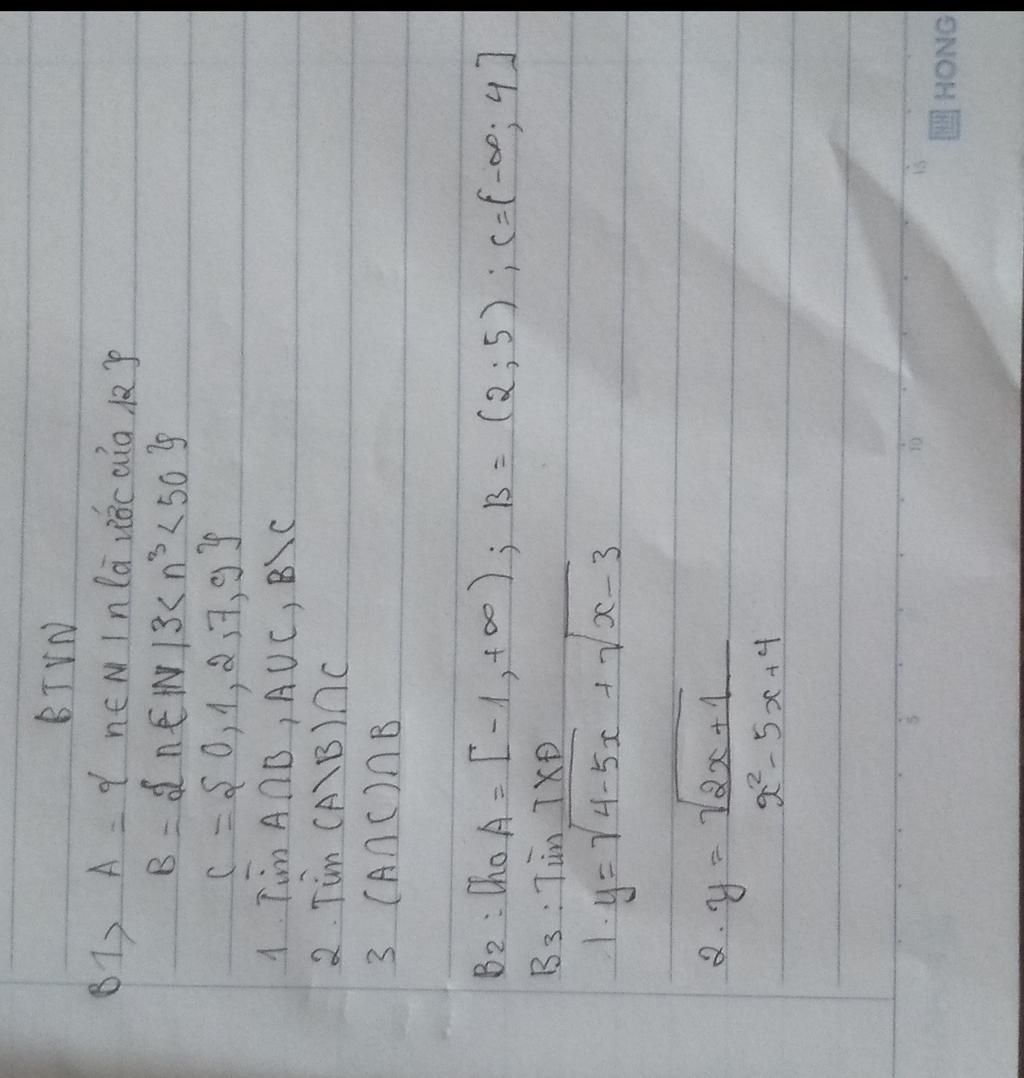 BTVN
B1> A = { n∈N | n là ước của 12 }
B = { n∈IN | 3 < n³ < 50 }
C = { 0, 1, 2, 7, 9 }
1. Tìm A∩B, A∪C, B\C
2. Tìm (A\B)∩C
3 (A∩C)∩B
B2: Cho A = [-1, +∞); B = (2; 5); C = (-∞; 4]
B3: Tìm TXĐ
1. y = √4-5x + √x-3
2. y = √2x+1
x² - 5x + 4
5 10 15
HONG